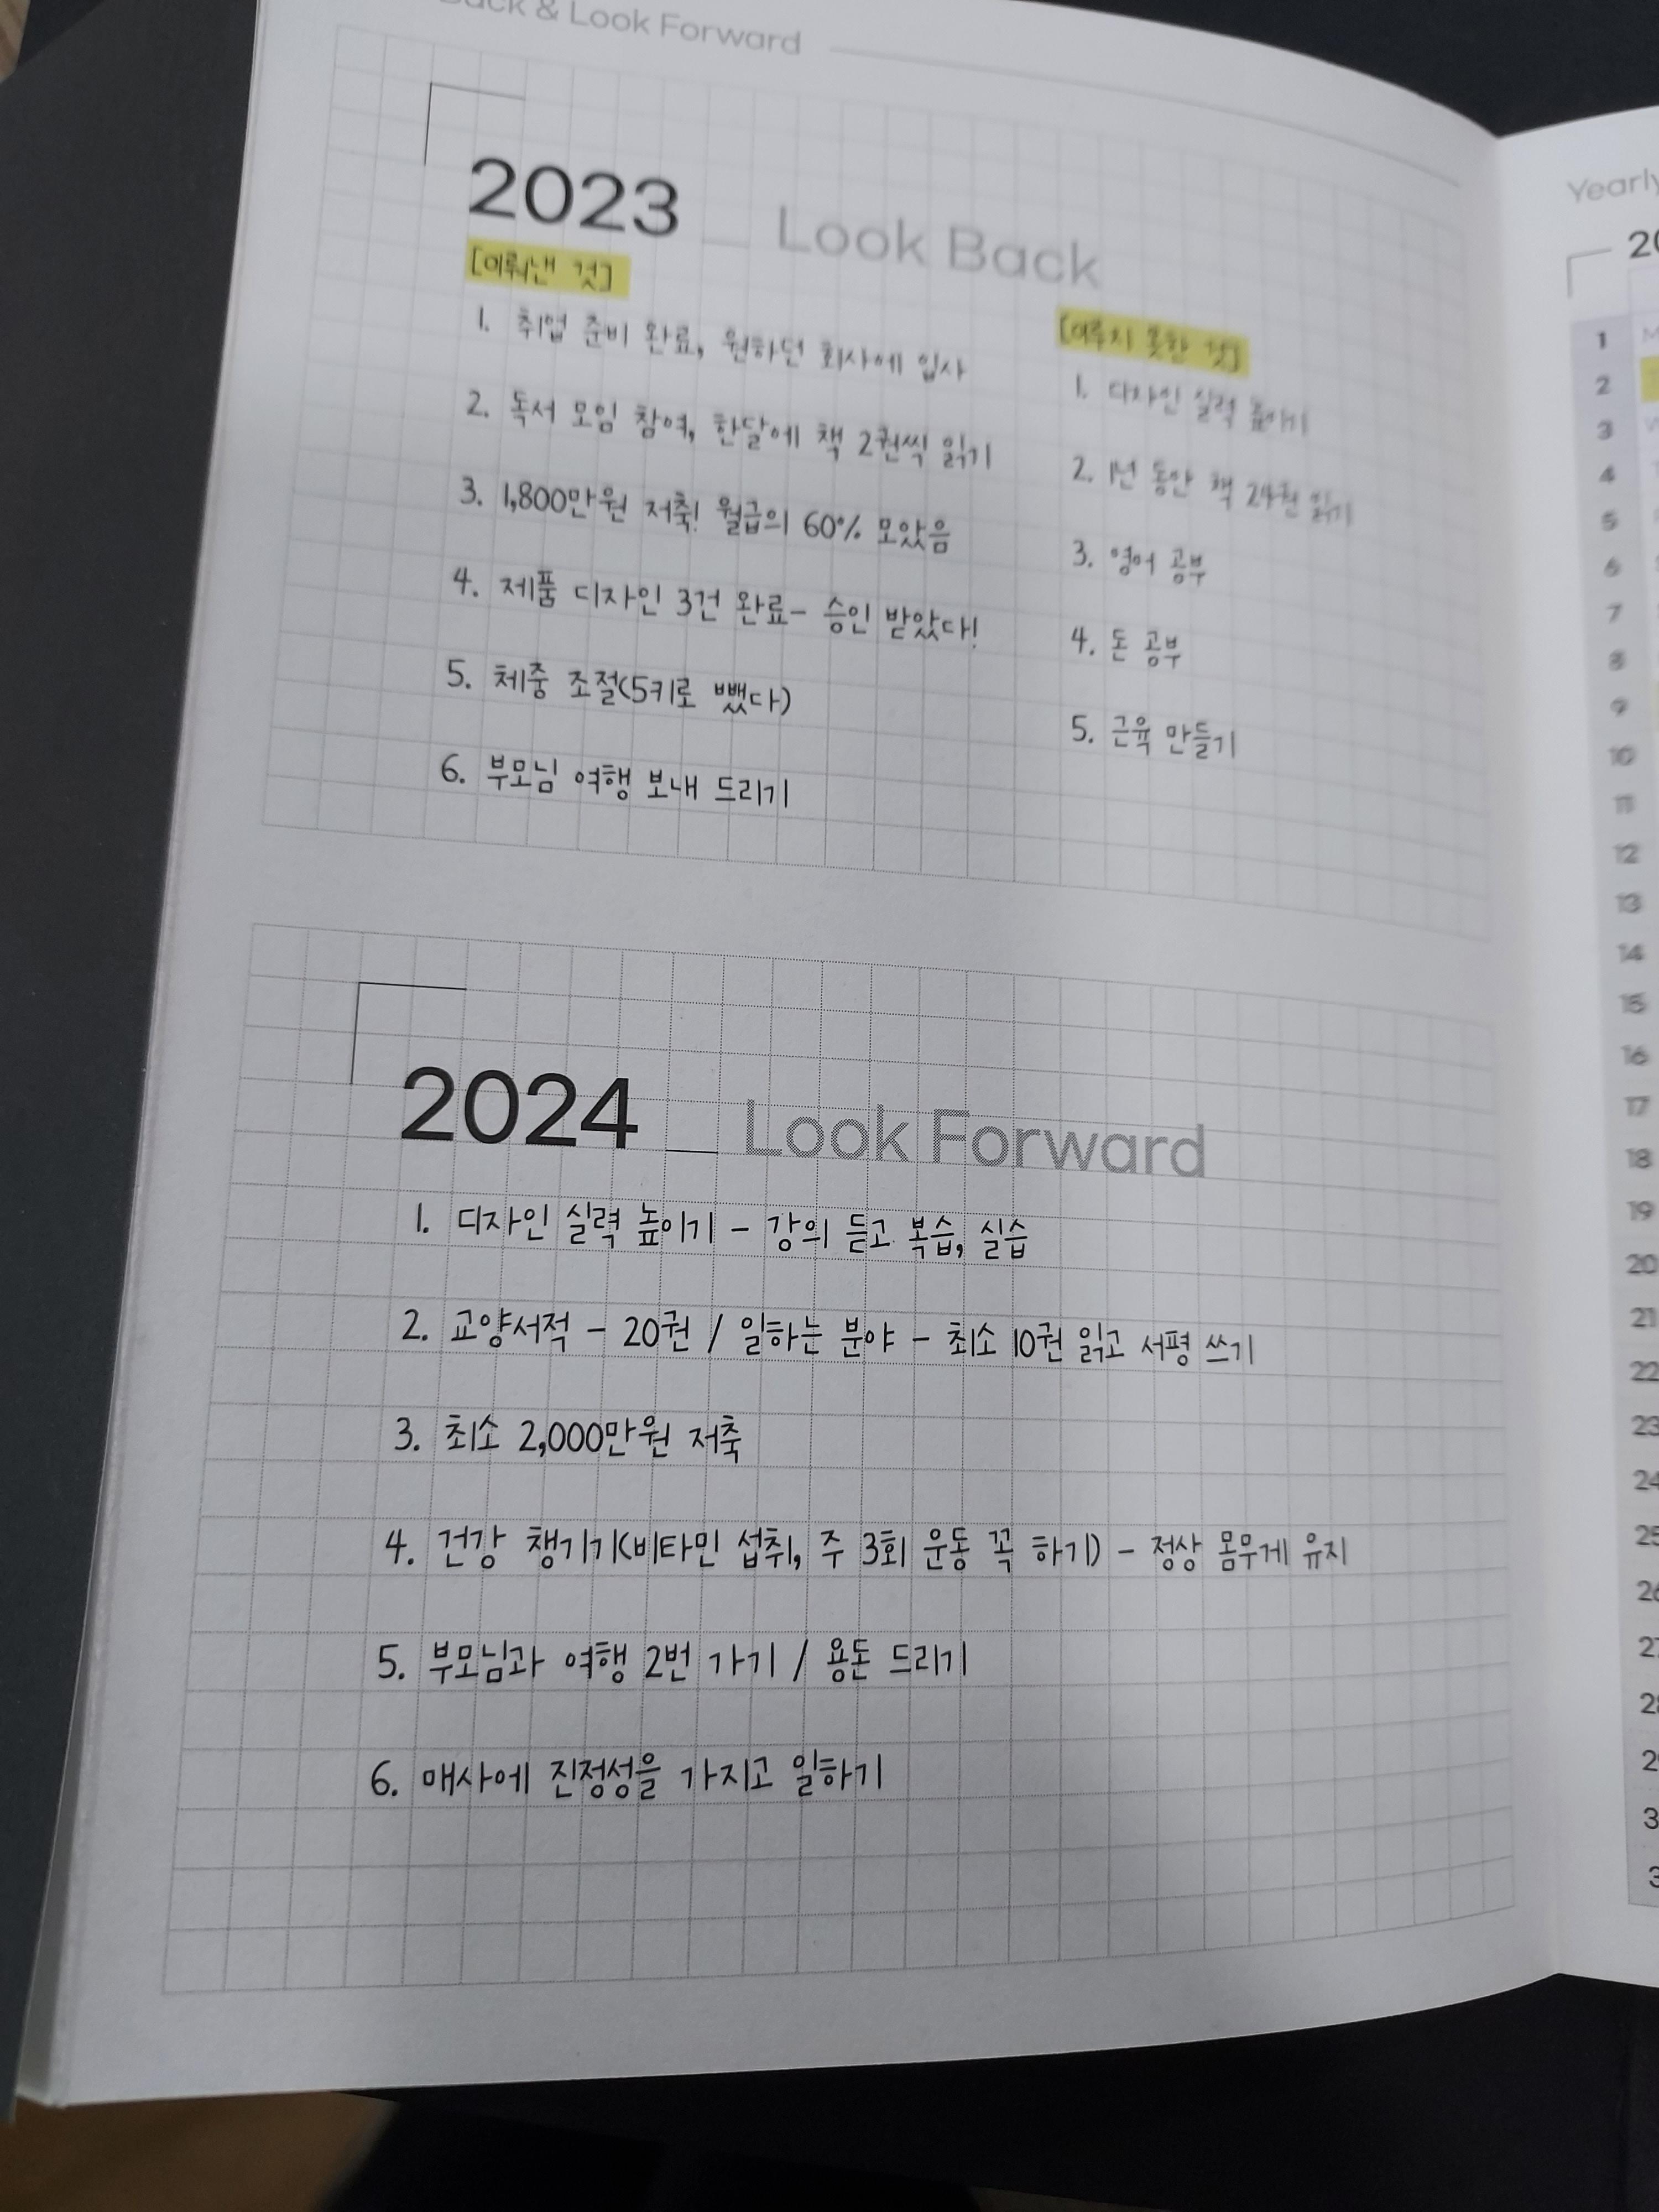 Back & Look Forward
2023 Look Back
[이뤄낸 것]
1. 취업 준비 완료, 원하던 회사에 입사
2. 독서 모임 참여, 한달에 책 2권씩 읽기
3. 1,800만원 저축! 월급의 60% 모았음
4. 제품 디자인 3건 완료- 승인 받았다!
5. 체중 조절(5키로 뺐다)
6. 부모님 여행 보내 드리기
[이루지 못한 것]
1. 디자인 실력 높이기
2. 1년 동안 책 24권 읽기
3. 영어 공부
4. 돈 공부
5. 근육 만들기
2024 Look Forward
1. 디자인 실력 높이기 - 강의 듣고 복습, 실습
2. 교양서적 - 20권 / 일하는 분야 - 최소 10권 읽고 서평 쓰기
3. 최소 2,000만원 저축
4. 건강 챙기기(비타민 섭취, 주 3회 운동 꼭 하기) - 정상 몸무게 유지
5. 부모님과 여행 2번 가기 / 용돈 드리기
6. 매사에 진정성을 가지고 일하기
Yearly
1
2
3
4
5
6
7
8
9
10
11
12
13
14
15
16
17
18
19
20
21
22
23
24
25